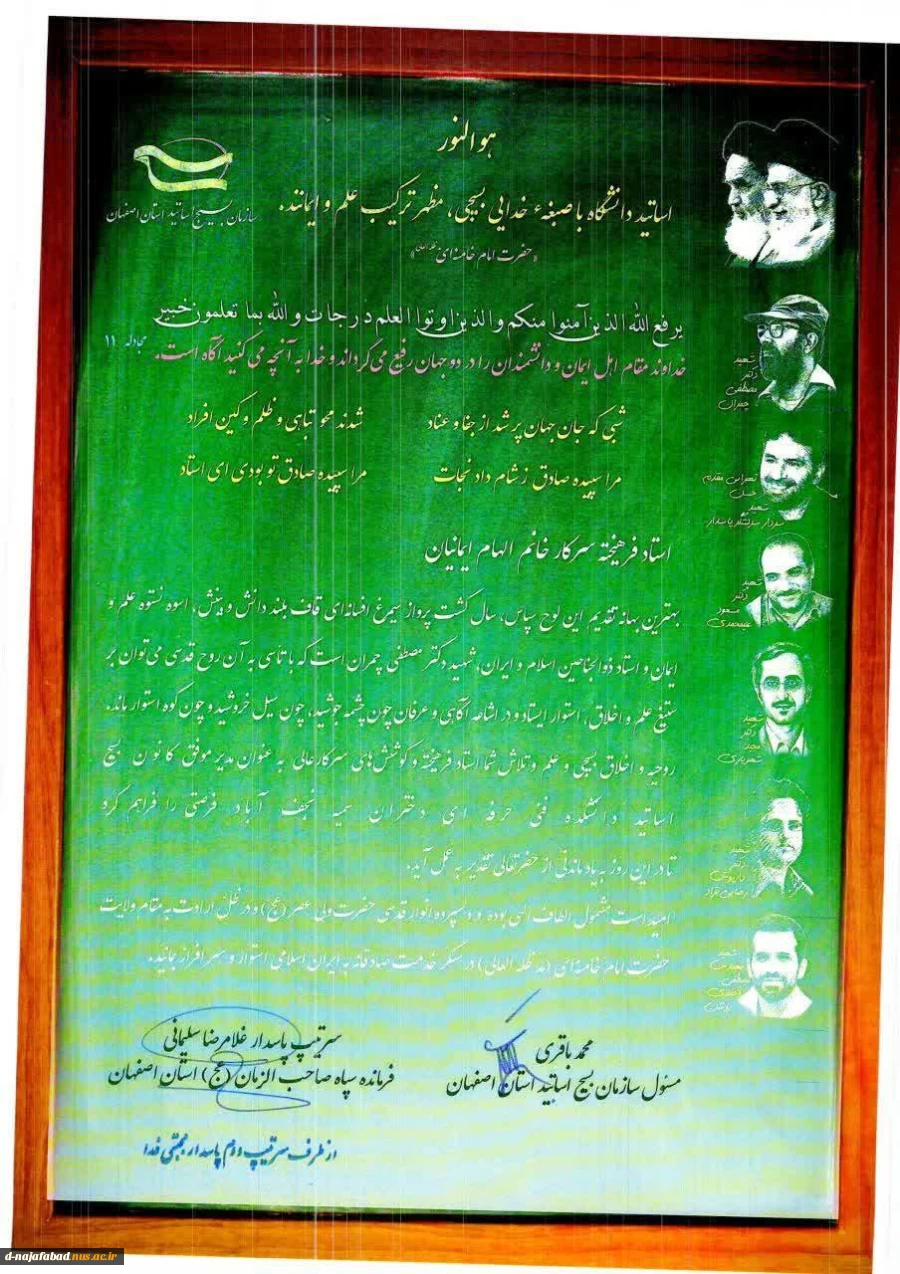 هوالنور
اساتید دانشگاه با صبغهء خدایی بسیجی، مظهر ترکیب علم و ایمانند.
«حضرت امام خامنه‌ای»
سازمان بسیج اساتید استان اصفهان
یرفع الله الذین آمنوا منکم والذین اوتوا العلم درجات و الله بما تعلمون خبیر
مجادله ۱۱
خداوند مقام اهل ایمان و دانشمندان را در دو جهان رفیع می‌گرداند و خدا به آنچه می‌کنید آگاه است.
شبی که جان جهان پر شد از جفا و عناد شدند محو تباهی و ظلم و کین افراد
مرا سپیده صادق ز شام داد نجات مرا سپیده صادق تو بودی ای استاد
استاد فرهیخته سرکار خانم الهام ایمانیان
بهترین بهانه تقدیم این لوح سپاس، سال گشت پرواز سیمرغ افسانه‌ای قاف بلند دانش و بینش، اسوه نستوه علم و
ایمان و استاد ذوالجناحین اسلام و ایران، شهید دکتر مصطفی چمران است که با تاسی به آن روح قدسی می‌توان بر
ستیغ علم و اخلاق، استوار ایستاد و در اشاعه آگاهی و عرفان چون چشمه جوشید، چون سیل خروشید و چون کوه استوار ماند.
روحیه و اخلاق بسیجی و علم و تلاش شما استاد فرهیخته و کوشش‌های سرکارعالی به عنوان مدیر موفق کانون بسیج
اساتید دانشکده فنی حرفه ای دختران سمیه نجف آباد فرصتی را فراهم کرد
تا در این روز به یاد ماندنی از حضرتعالی تقدیر به عمل آید.
امید است مشمول الطاف الهی بوده و دلسپرده انوار قدسی حضرت ولی عصر (عج) و در ظل ارادت به مقام ولایت
حضرت امام خامنه‌ای (مد ظله العالی) در سنگر خدمت صادقانه به ایران اسلامی استوار و سرافراز بمانید.
شهید
دکتر
مصطفی
چمران
شهید
دکتر
مسعود
علیمحمدی
شهید
دکتر
مجید
شهریاری
شهید
دکتر
داریوش
رضایی نژاد
محمد باقری
مسئول سازمان بسیج اساتید استان اصفهان
سرتیپ پاسدار غلامرضا سلیمانی
فرمانده سپاه صاحب الزمان (عج) استان اصفهان
از طرف سرتیپ دوم پاسدار مجتبی فدا
d-najafabad.nus.ac.ir